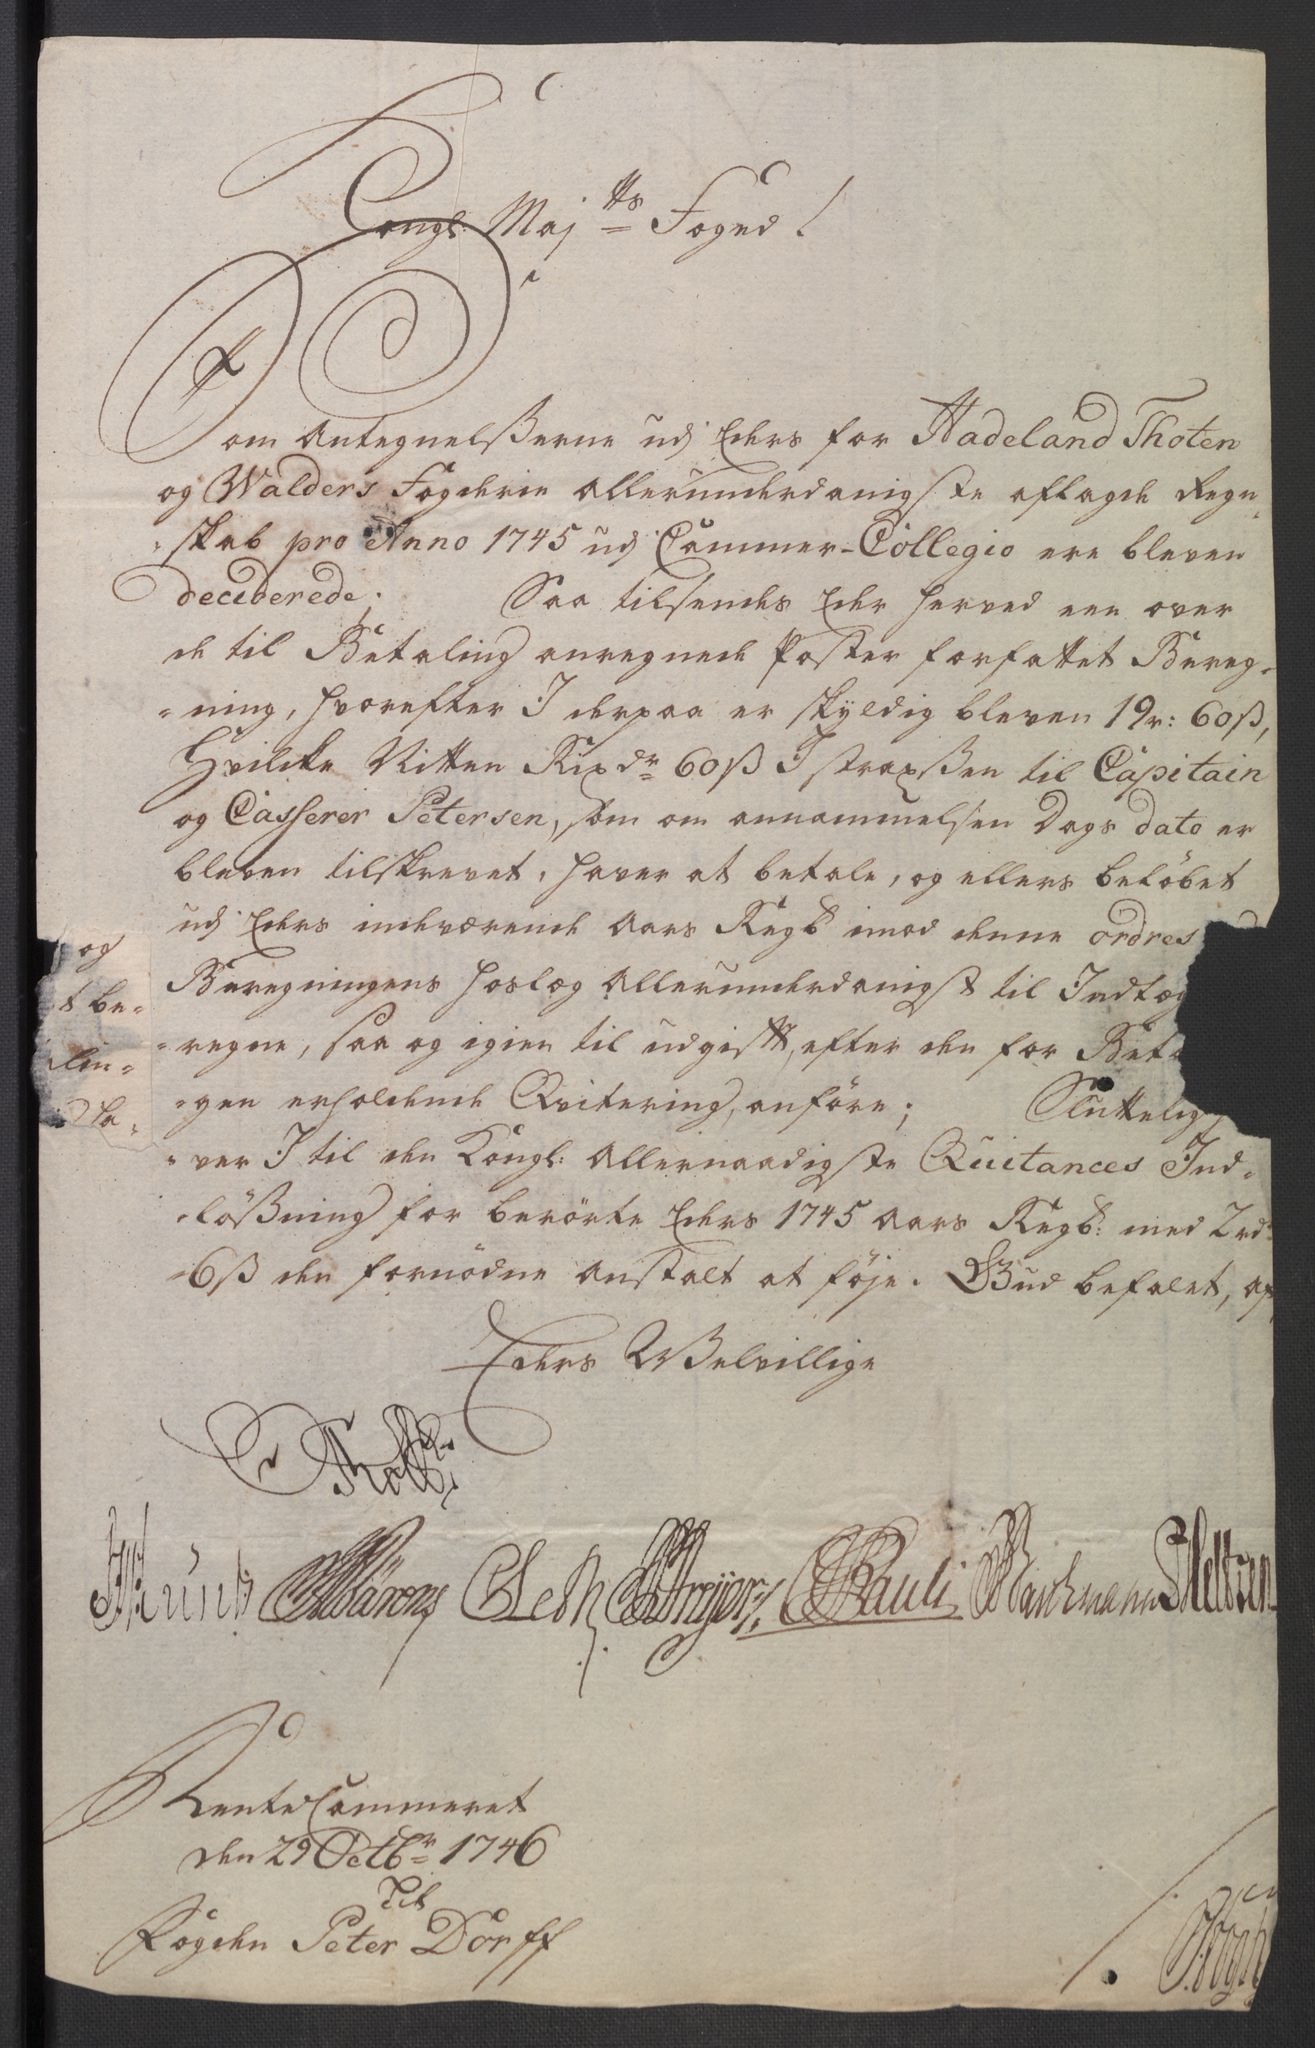 Kongl: Maj tts Foged!
Som Antegnelßerne udj Eders for Hadeland Thoten
og Walders Fogderie allerunderdanigste aflagde Regn-
-skab pro Anno 1745 udj Cammer-Collegio ere bleven
deciderede; Saa tilsendes Eder herved een over
de til Betaling anregnede Poster forfattet Bereg-
-ning, hvorefter I derpaa er skyldig bleven 19r: 60ß,
Hvilcke Nitten Rixdr 60ß I straxßen til Capitain
og Casserer Petersen, som om annammelsen Dags dato er
bleven tilskrevet, haver at betale, og ellers beløbet
udj Eders indeværende Aars Regsb imod denne ordres
Beregningens hoslæg allerunderdanigst til Indtægt
-regne, saa og igien til udgift, efter den for Beta
-gen erholdende Qvitering, anføre; Sluttelig
-ver I til den Kongl: Allernaadigste Quitances Ind-
-lößning for berörte Eders 1745 Aars Regsb: med 2rd
-6ß den fornödne Anstalt at föje. Gud befalet, af
og
t be-
lin-
d ha-
Eders Welvillige
Holst
Bärens CLeth Dreyer Pauli Bachmann Neltzen
RenteCammeret
den 29 Octbr 1746
Til
Fogden Peter Dorff